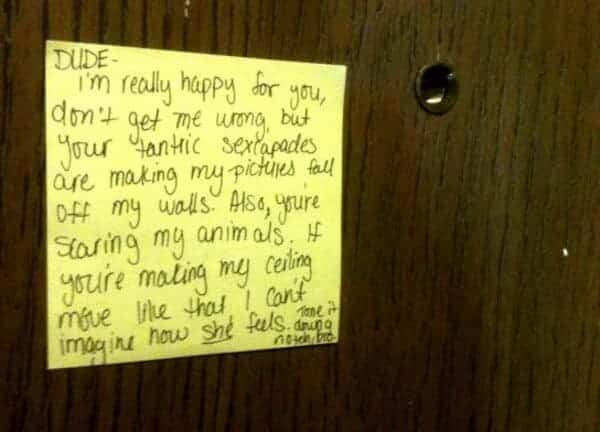 DUDE-
i'm really happy for you,
don't get me wrong, but
your tantric sexcapades
are making my pictures fall
off my walls. Also, you're
scaring my animals. If
you're making my ceiling
move like that I can't
imagine how she feels. Tone it
down a
notch, bro.